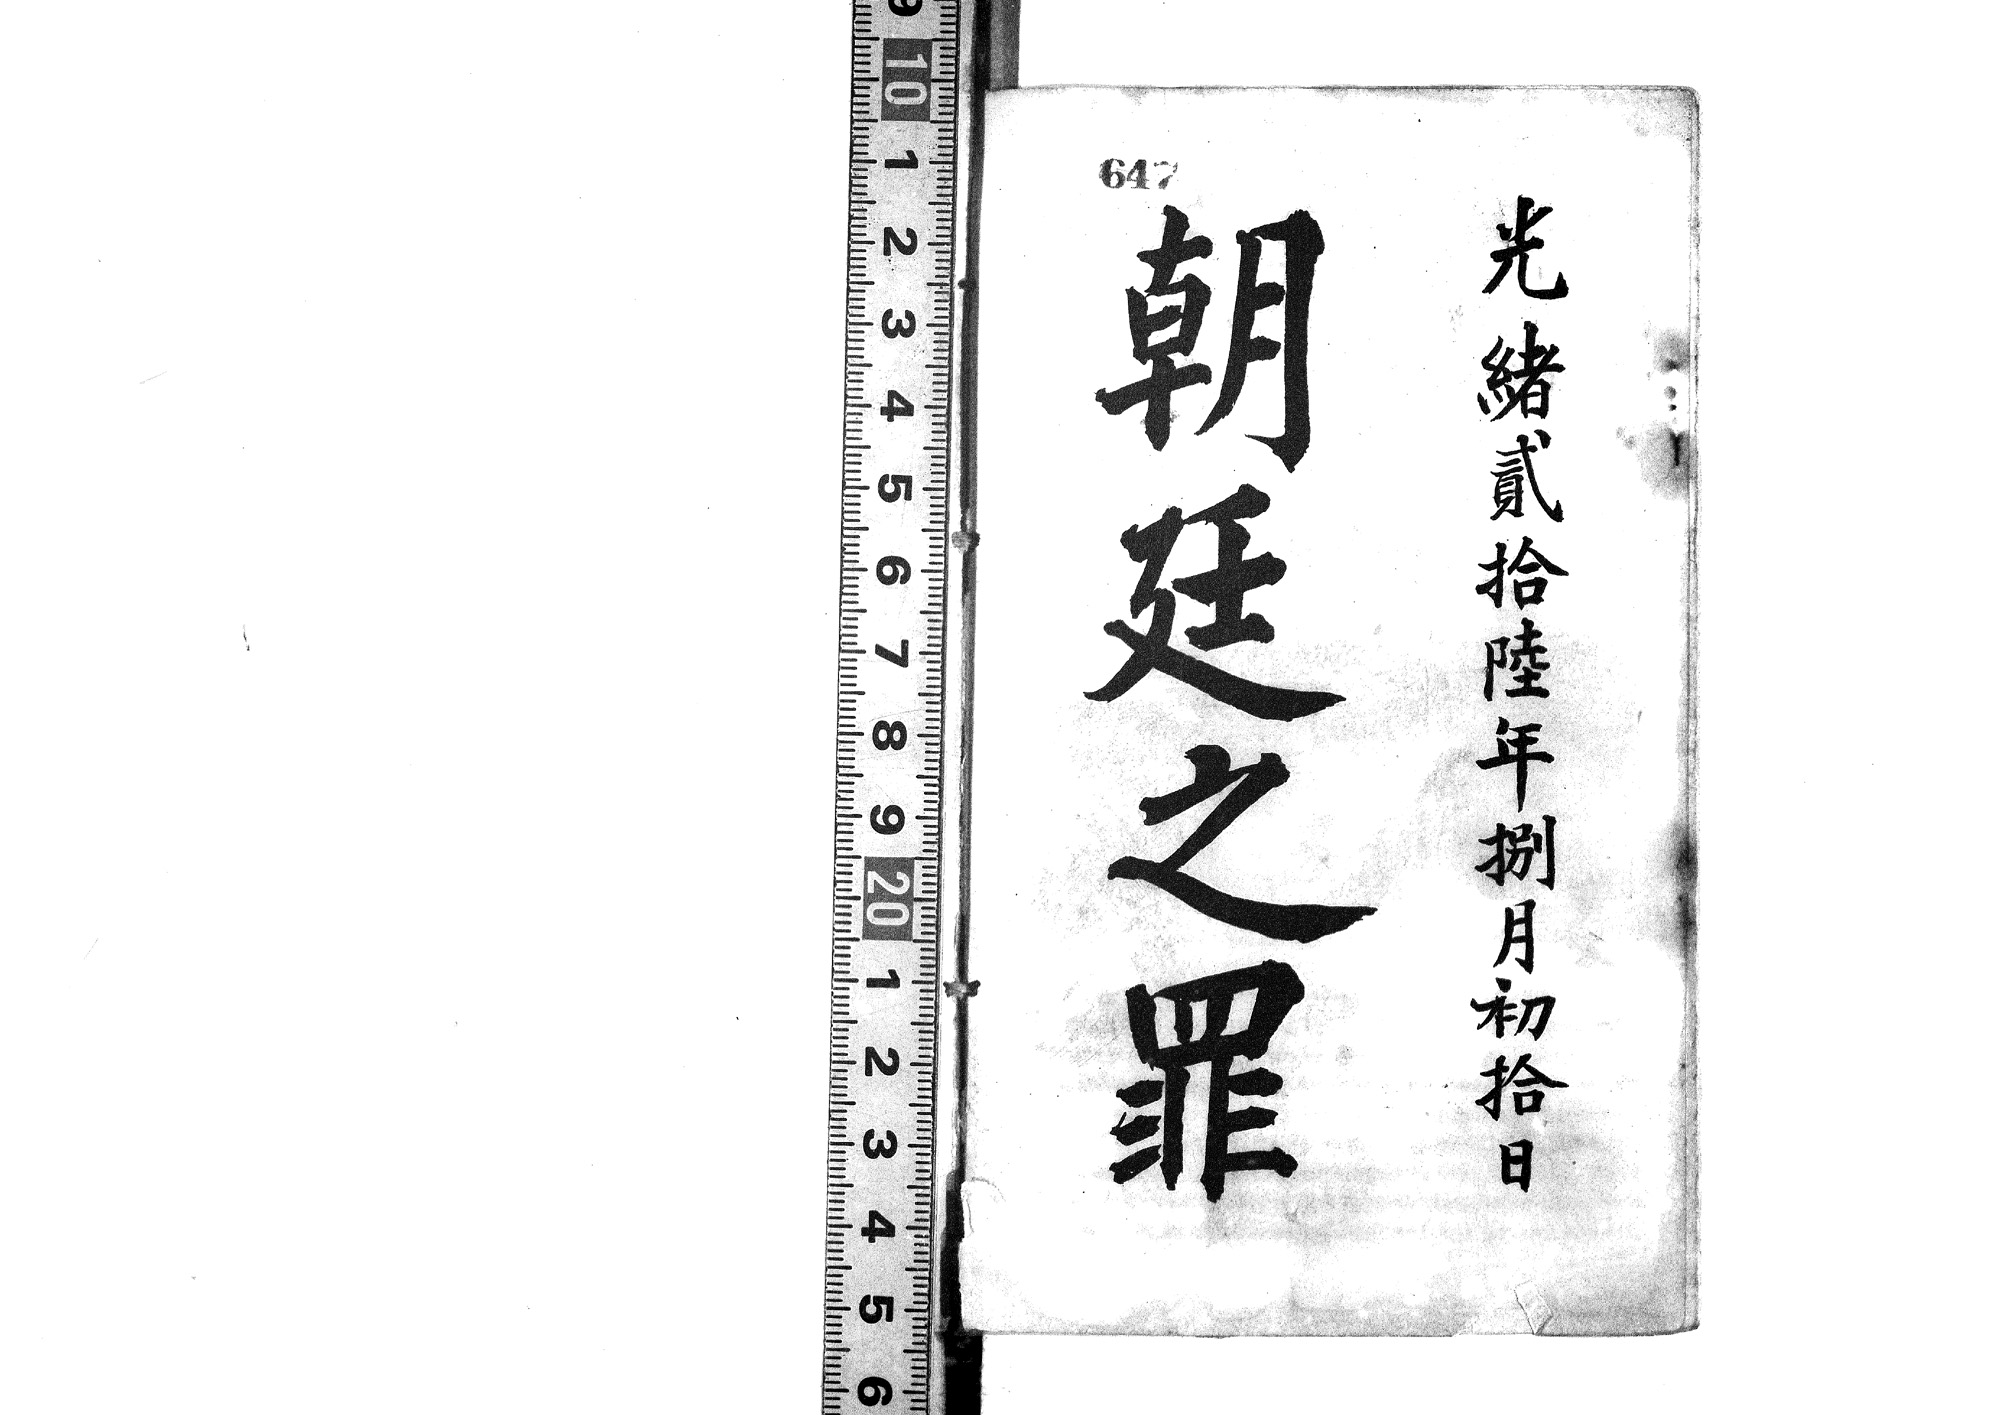 光緒貳拾陸年捌月初拾日
647
朝廷之罪
9 10 1 2 3 4 5 6 7 8 9 20 1 2 3 4 5 6